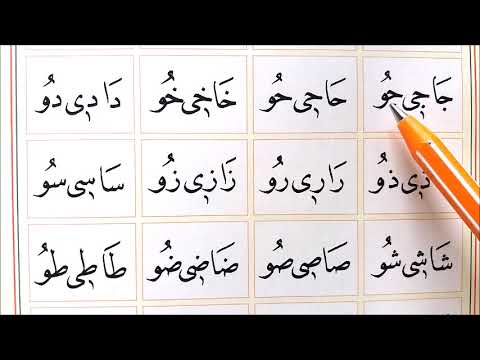 جَا جٖى جُو حَا حٖى حُو خَا خٖى خُو دَا دٖى دُو
ذٖى ذُو رَا رٖى رُو زَا زٖى زُو سَا سٖى سُو
شَا شٖى شُو صَا صٖى صُو ضَا ضٖى ضُو طَا طٖى طُو